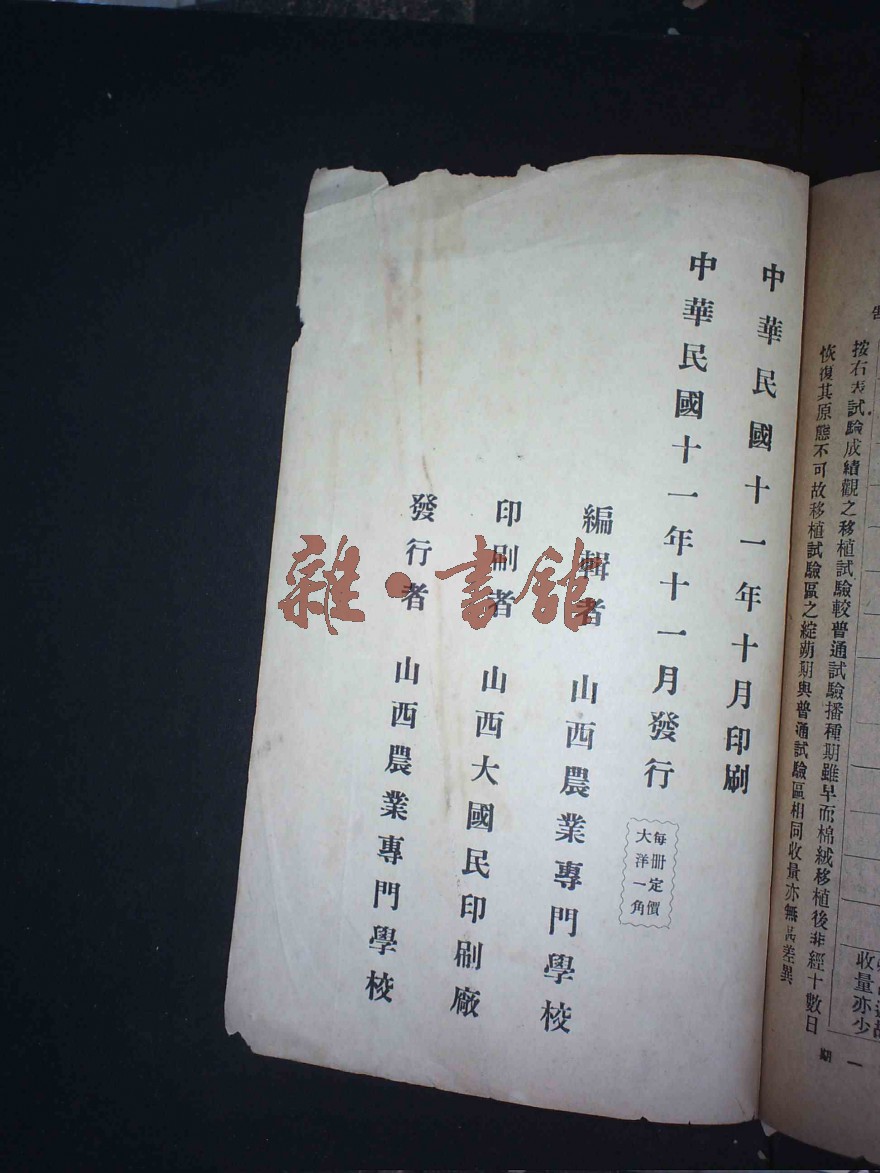 收量亦少
按右表試驗成績觀之移植試驗較普通試驗播種期雖早而棉絨移植後非經十數日
恢復其原態不可故移植試驗區之綻蒴期與普通試驗區相同收量亦無差異
期 一
中華民國十一年十月印刷
中華民國十一年十一月發行
每冊定價
大洋一角
編輯者 山西農業專門學校
印刷者 山西大國民印刷廠
發行者 山西農業專門學校
雜·書館